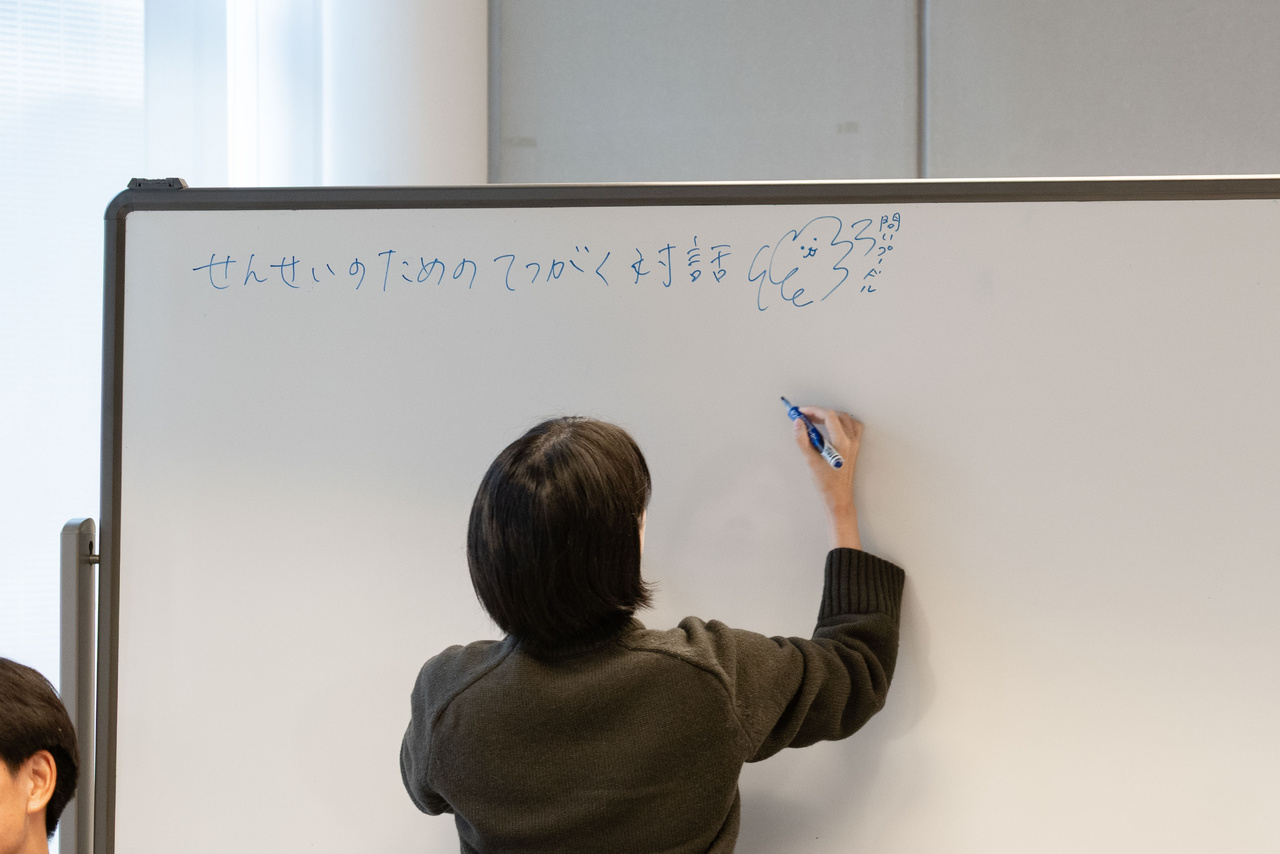 せんせいのための てつがく対話
問いプードル